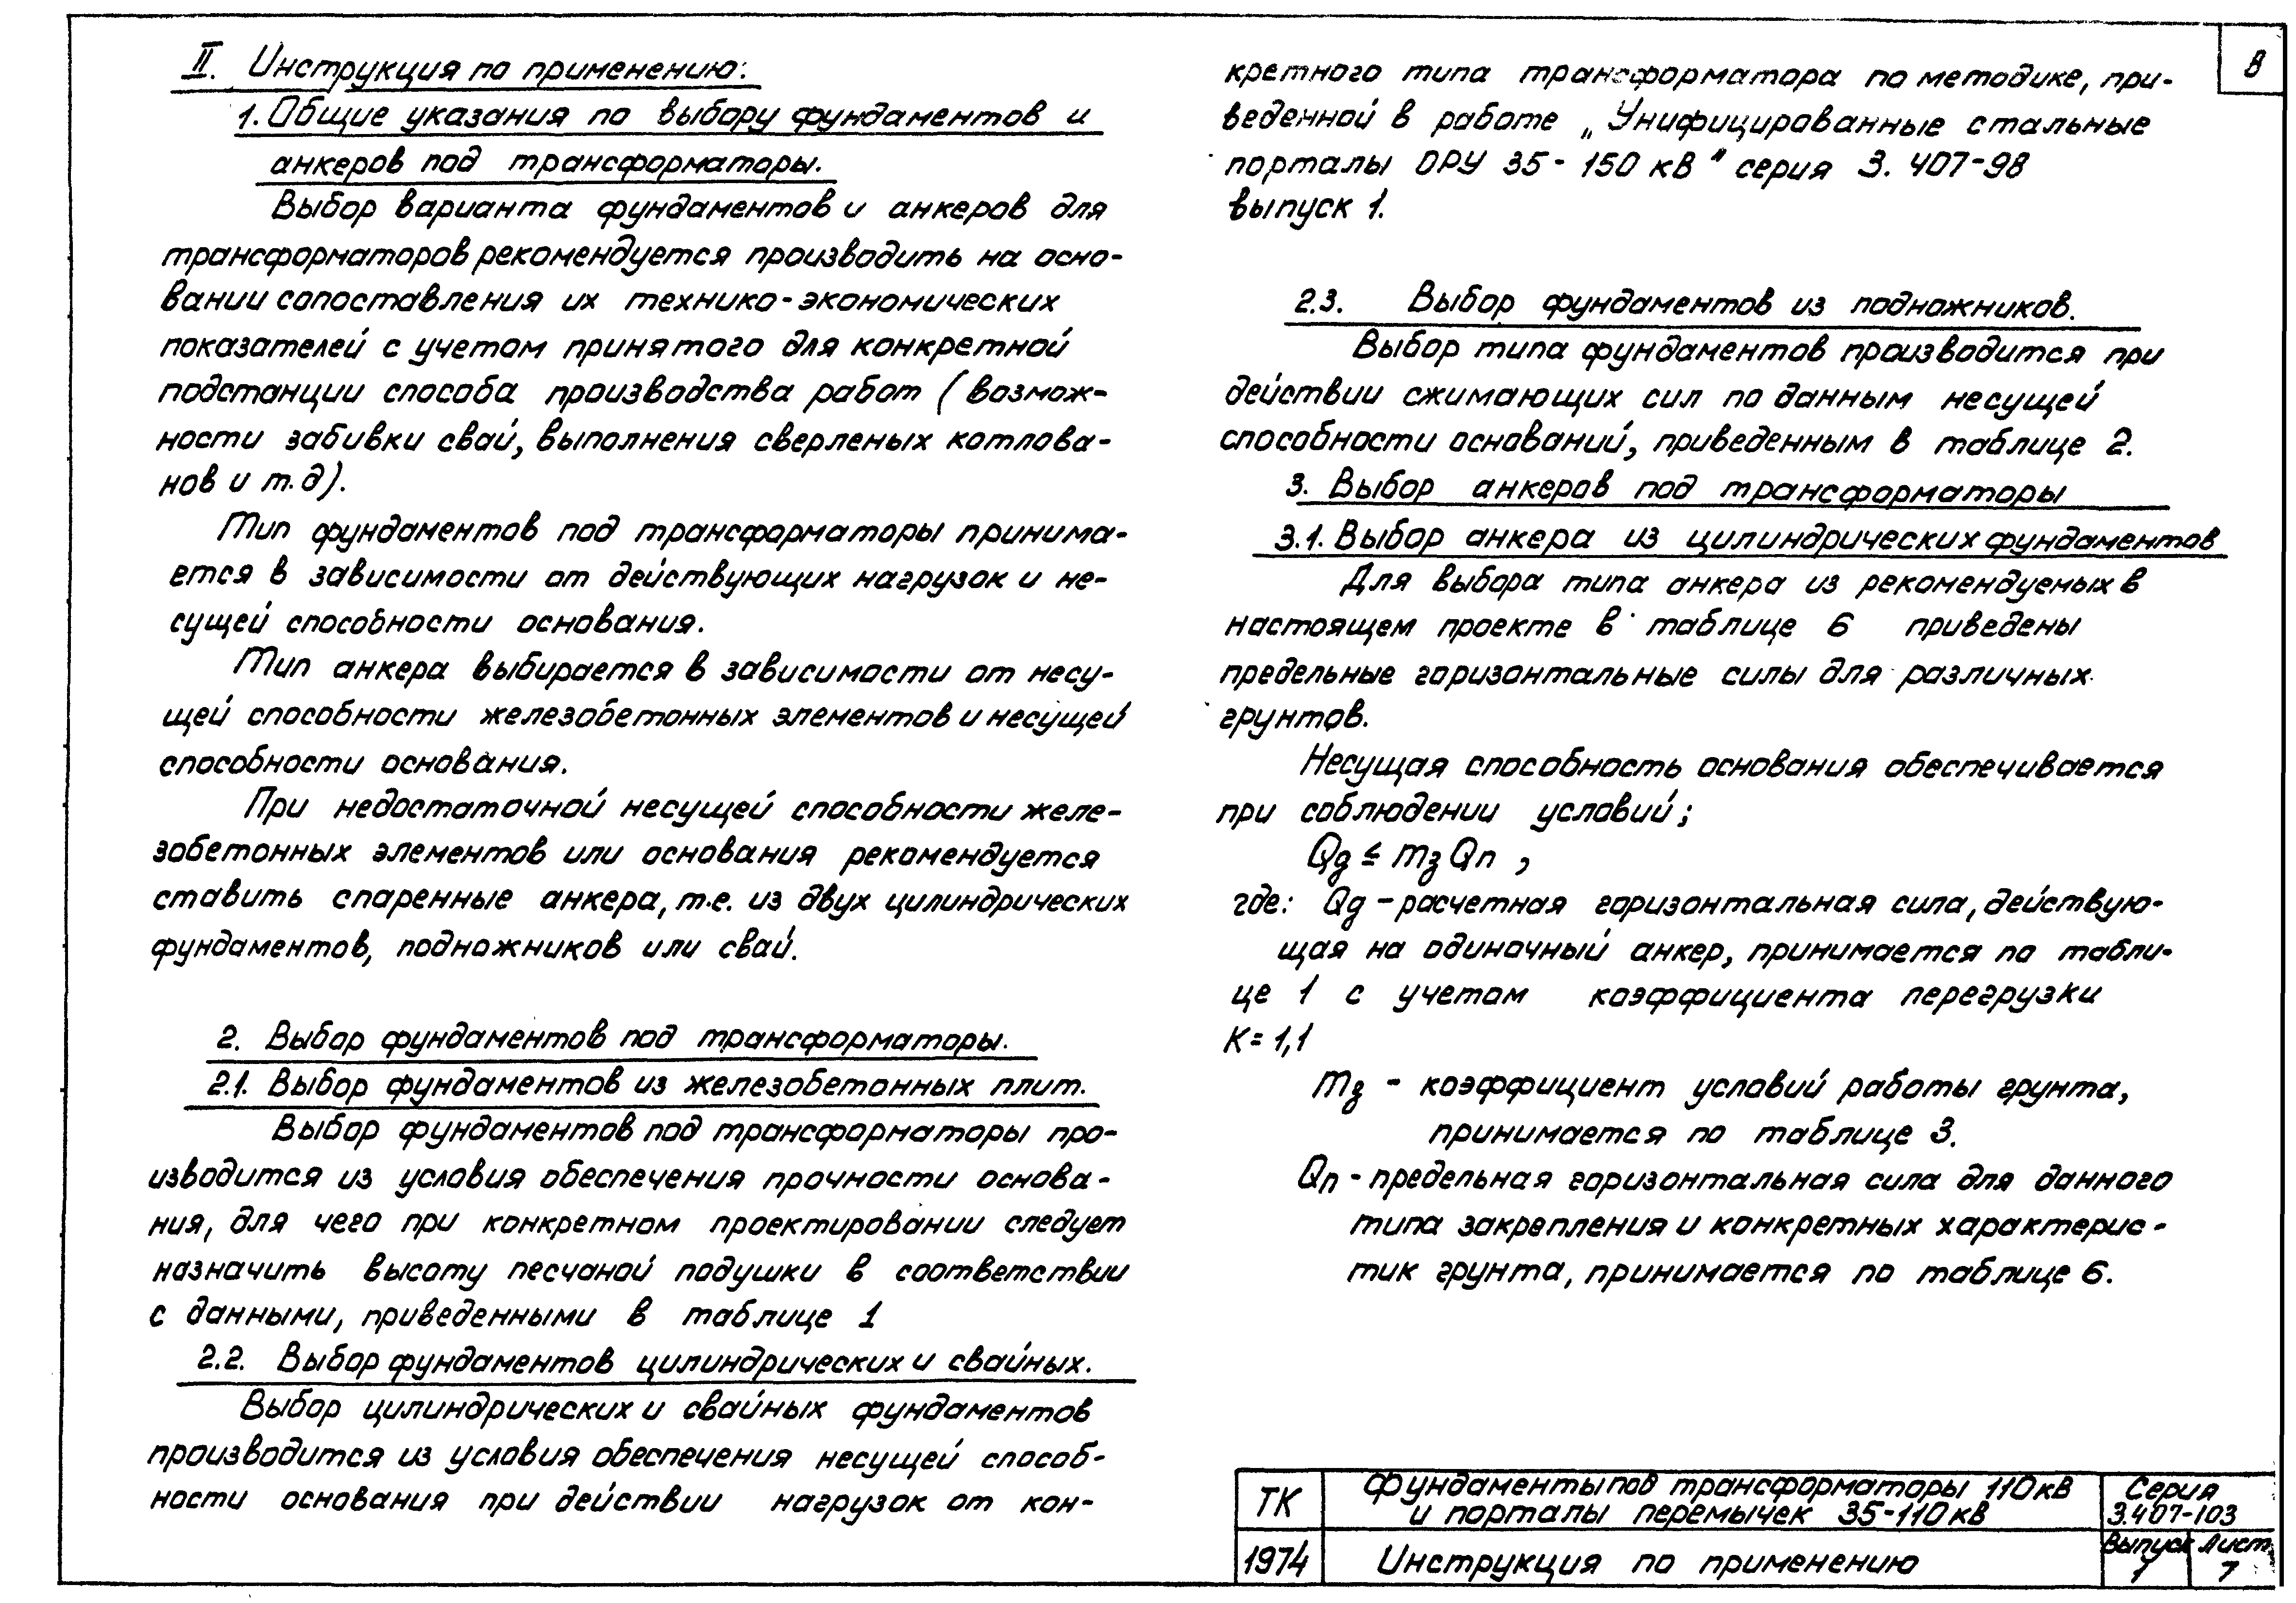 II. Инструкция по применению:
1. Общие указания по выбору фундаментов и
анкеров под трансформаторы.
Выбор варианта фундаментов и анкеров для
трансформаторов рекомендуется производить на осно-
вании сопоставления их технико-экономических
показателей с учетом принятого для конкретной
подстанции способа производства работ (возмож-
ности забивки свай, выполнения сверленых котлова-
нов и т.д).
Тип фундаментов под трансформаторы принима-
ется в зависимости от действующих нагрузок и не-
сущей способности основания.
Тип анкера выбирается в зависимости от несу-
щей способности железобетонных элементов и несущей
способности основания.
При недостаточной несущей способности желе-
зобетонных элементов или основания рекомендуется
ставить спаренные анкера, т.е. из двух цилиндрических
фундаментов, подножников или свай.
2. Выбор фундаментов под трансформаторы.
2.1. Выбор фундаментов из железобетонных плит.
Выбор фундаментов под трансформаторы про-
изводится из условия обеспечения прочности основа-
ния, для чего при конкретном проектировании следует
назначить высоту песчаной подушки в соответствии
с данными, приведенными в таблице 1
2.2. Выбор фундаментов цилиндрических и свайных.
Выбор цилиндрических и свайных фундаментов
производится из условия обеспечения несущей способ-
ности основания при действии нагрузок от кон-
кретного типа трансформатора по методике, при-
веденной в работе „Унифицированные стальные
порталы ОРУ 35-150 кВ" серия 3.407-98
выпуск 1.
2.3. Выбор фундаментов из подножников.
Выбор типа фундаментов производится при
действии сжимающих сил по данным несущей
способности оснований, приведенным в таблице 2.
3. Выбор анкеров под трансформаторы
3.1. Выбор анкера из цилиндрических фундаментов
Для выбора типа анкера из рекомендуемых в
настоящем проекте в таблице 6 приведены
предельные горизонтальные силы для различных
грунтов.
Несущая способность основания обеспечивается
при соблюдении условий;
Qg ≤ mз Qп ,
где: Qg - расчетная горизонтальная сила, действую-
щая на одиночный анкер, принимается по табли-
це 1 с учетом коэффициента перегрузки
К= 1,1
mз - коэффициент условий работы грунта,
принимается по таблице 3.
Qп - предельная горизонтальная сила для данного
типа закрепления и конкретных характерис-
тик грунта, принимается по таблице 6.
8
ТК
Фундаменты под трансформаторы 110кВ
и порталы перемычек 35-110кВ
Серия
3.407-103
1974
Инструкция по применению
Выпуск
1
Лист
7